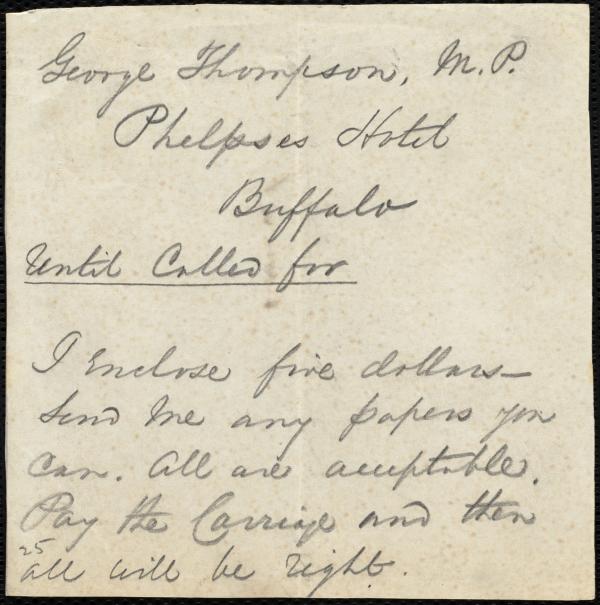 George Thompson, M.P.
Phelpses Hotel
Buffalo
Until Called for
I Enclose five dollars—
Send me any papers you
can. All are acceptable.
Pay the Carriage and then
25
all will be right.